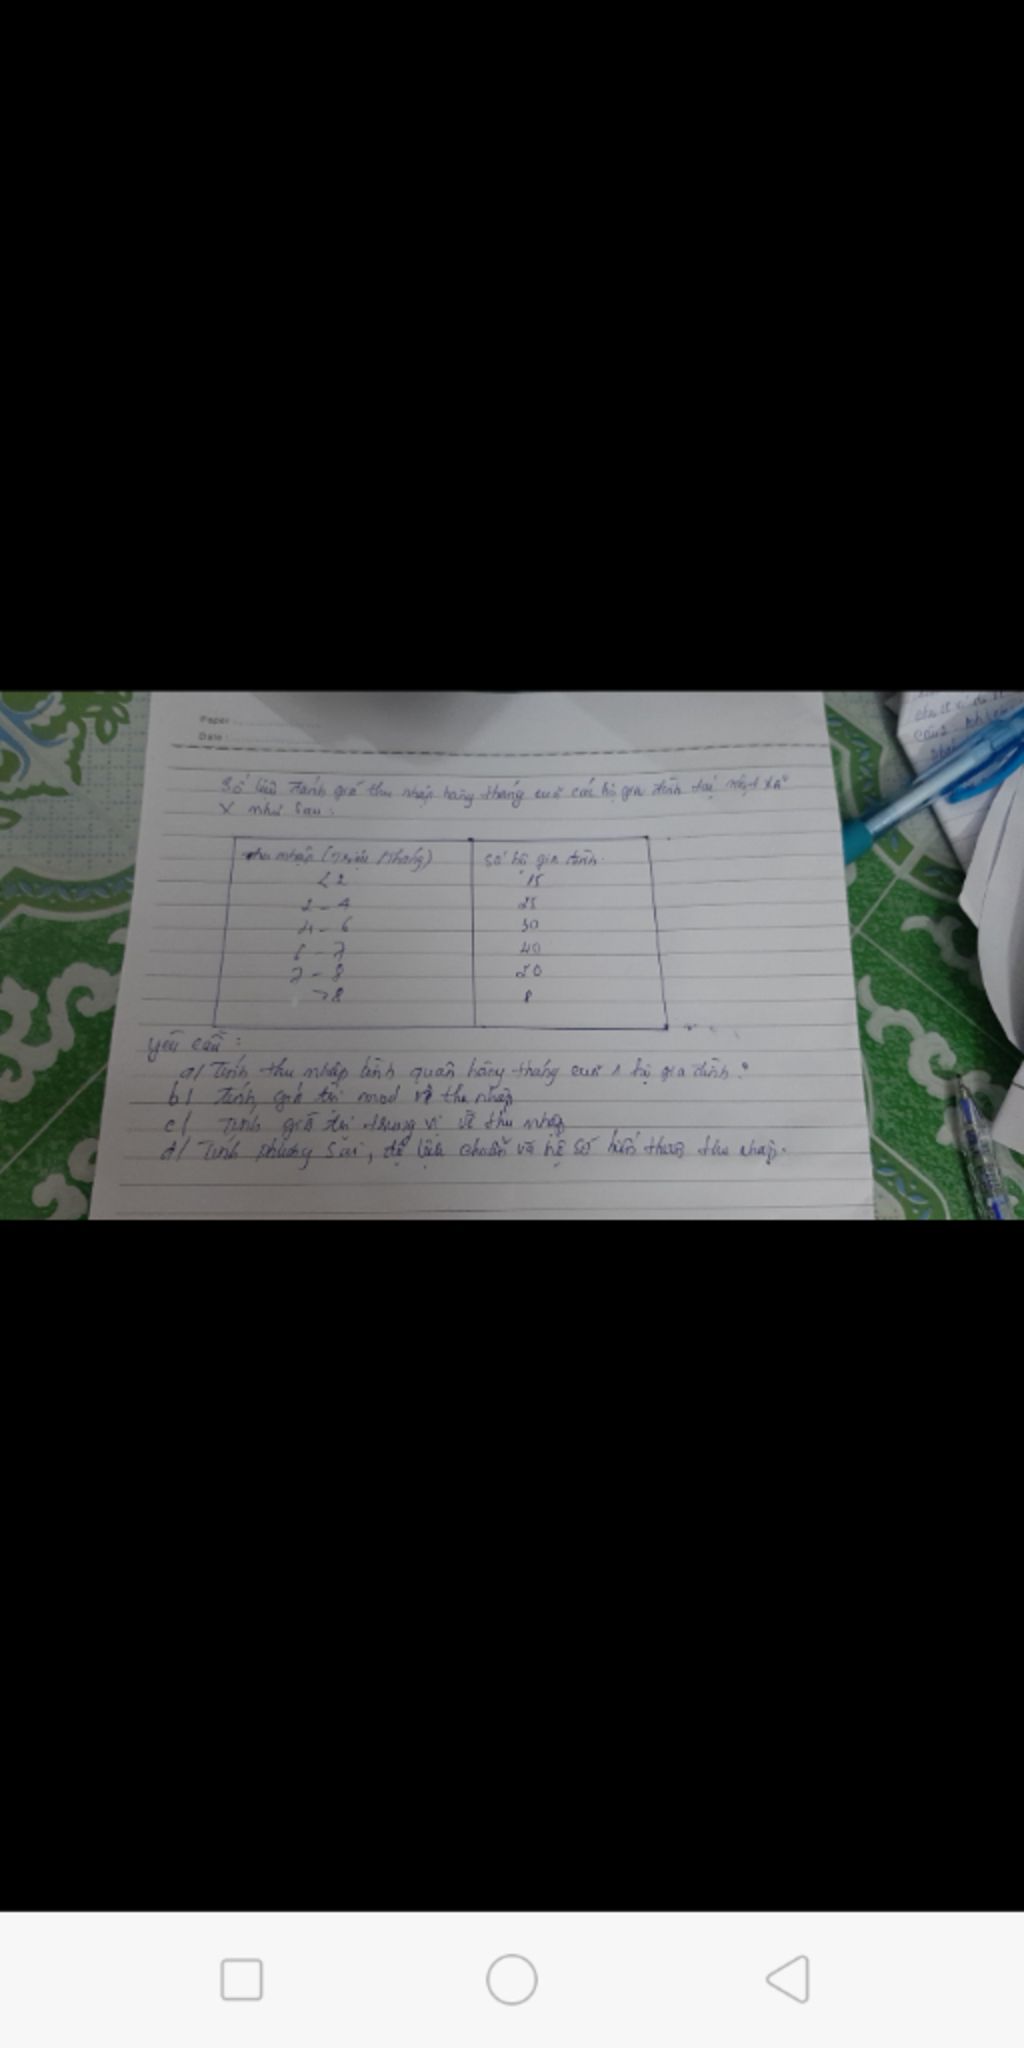 Paper
Date:
Số liệu đánh giá thu nhập hàng tháng của các hộ gia đình tại một xã
X như sau:
thu nhập (Triệu /tháng) số hộ gia đình
<2 15
2 - 4 25
4 - 6 50
6 - 7 40
7 - 8 20
>8 8
yêu cầu:
a/ Tính thu nhập bình quân hàng tháng của 1 hộ gia đình?
b/ tính giá trị mod về thu nhập
c/ Tính giá trị trung vị về thu nhập
d/ Tính phương sai, độ lệch chuẩn và hệ số biến thiên thu nhập.